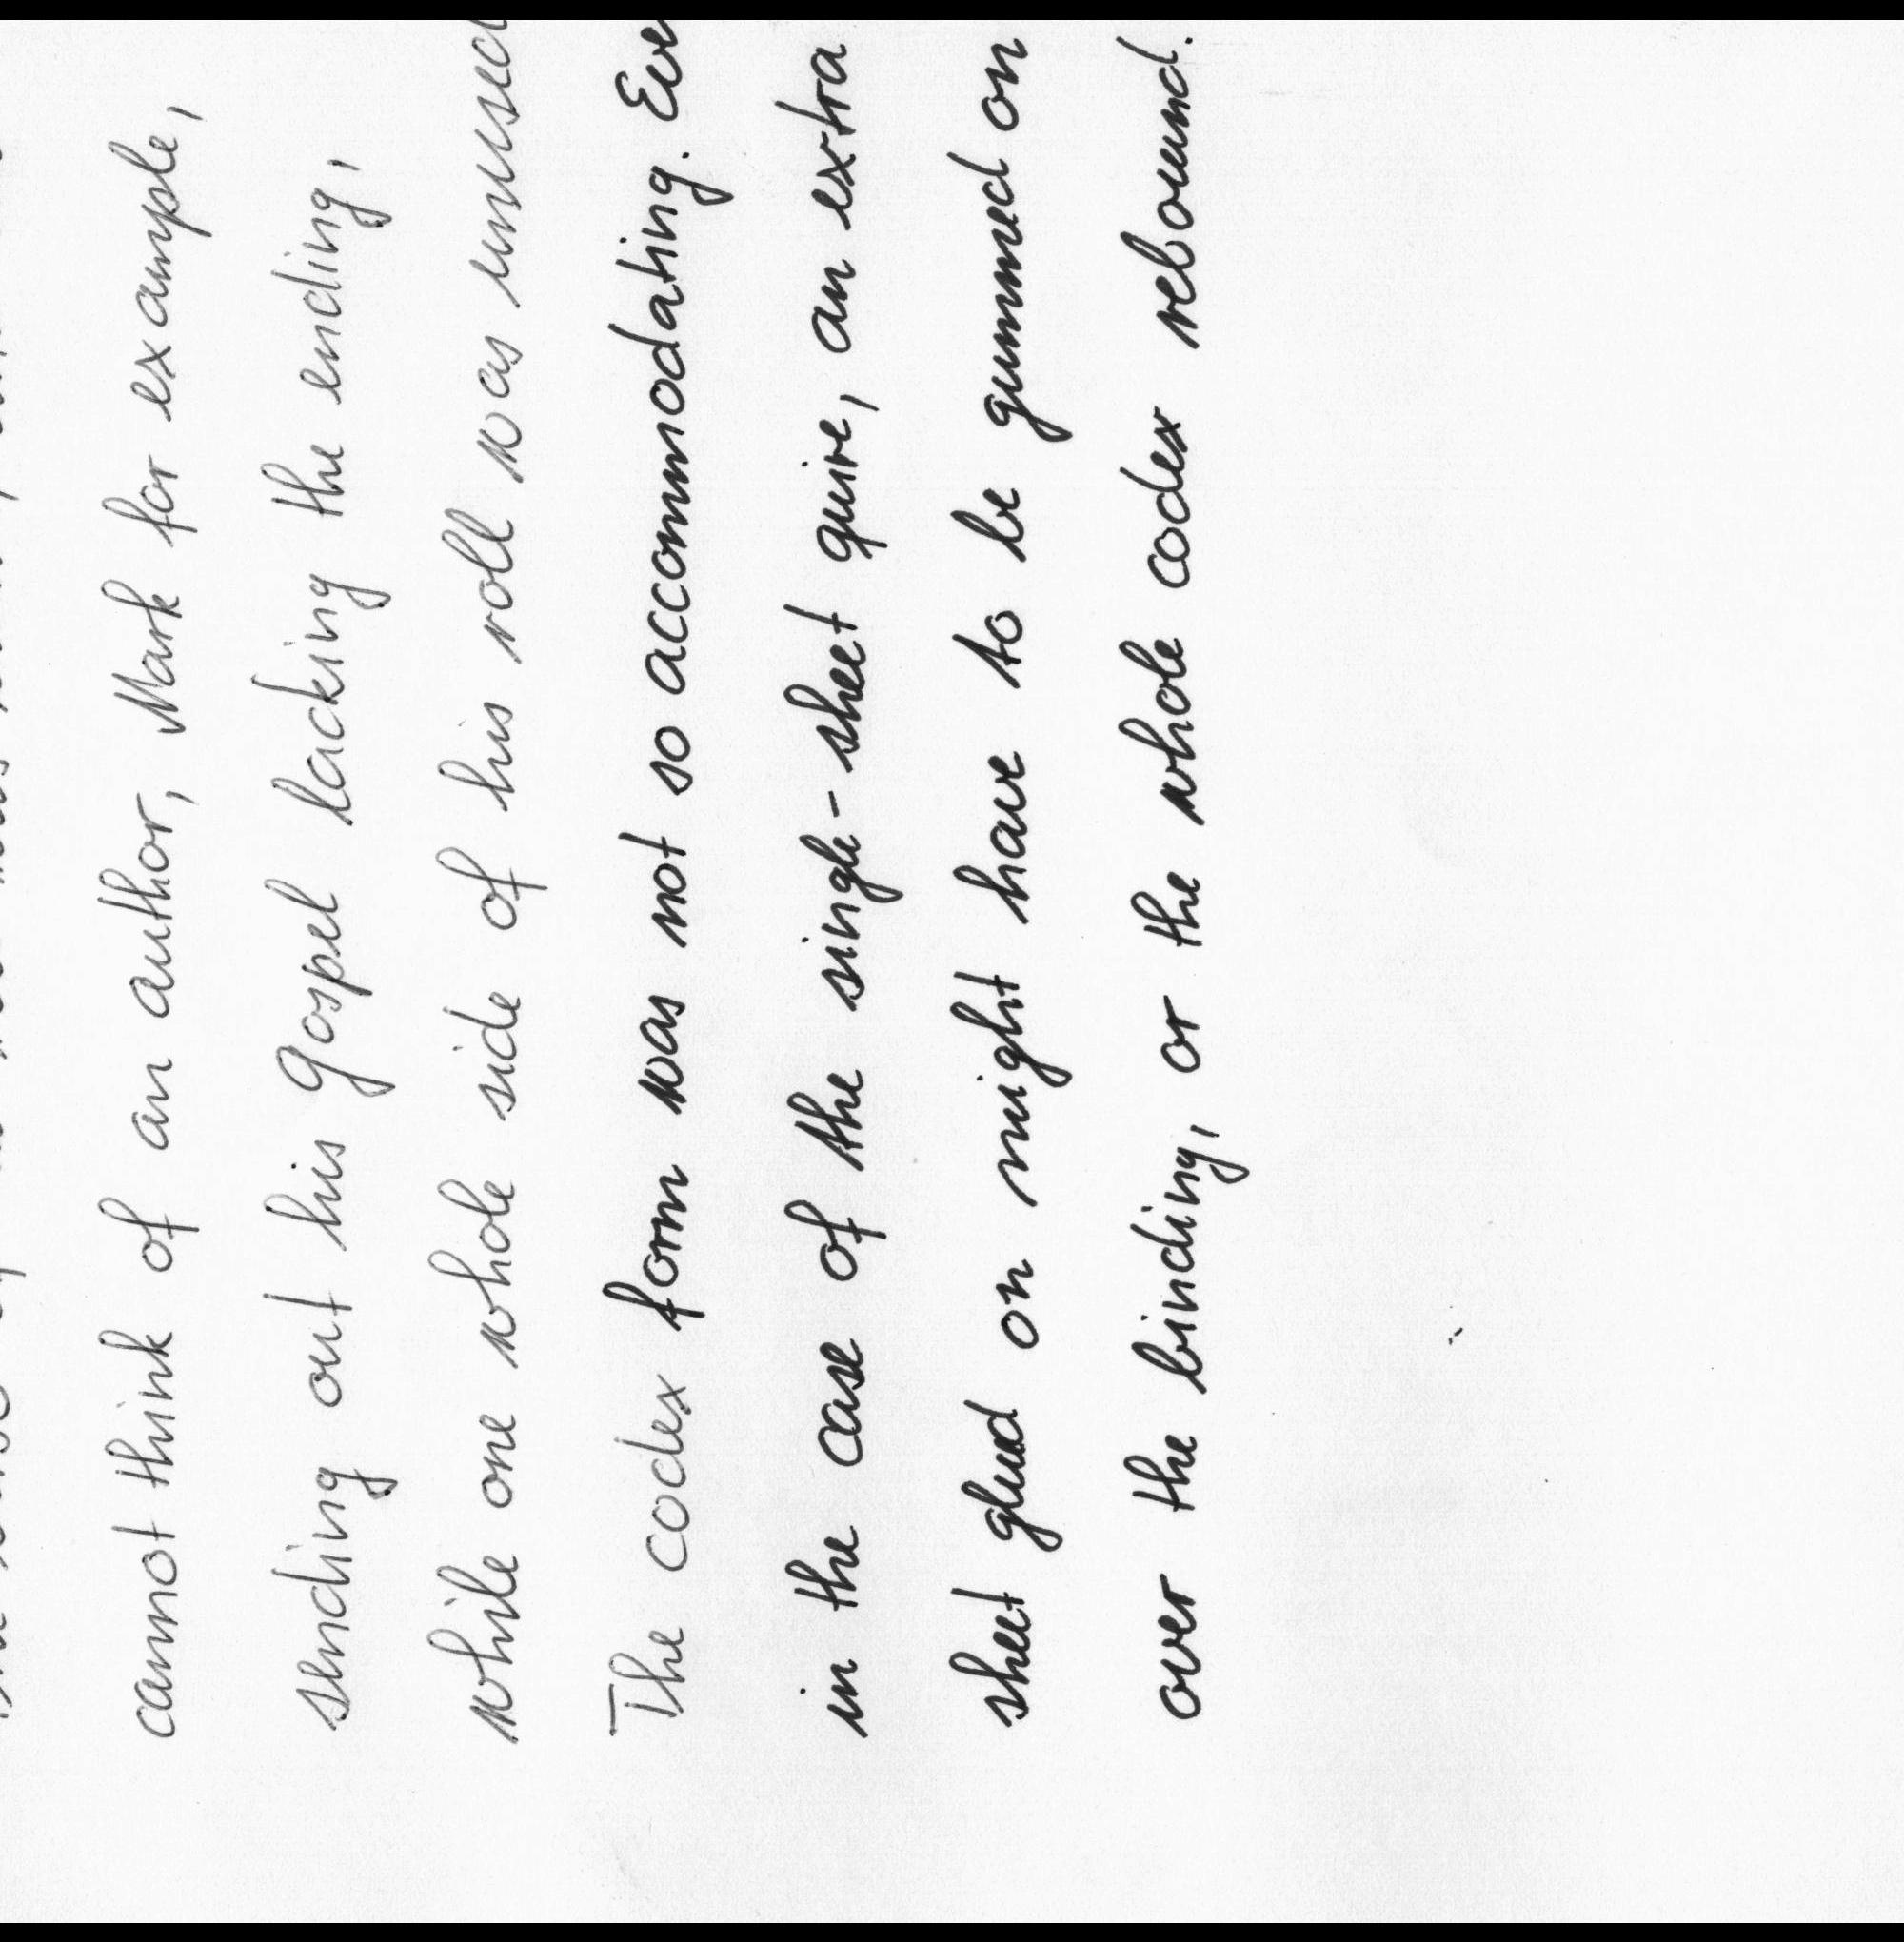 cannot think of an author, Mark for example,
sending out his Gospel lacking the ending,
while one whole side of his roll was unused
The codex form was not so accommodating. Eve
in the case of the single-sheet quire, an extra
sheet glued on might have to be gummed on
over the binding, or the whole codex rebound.